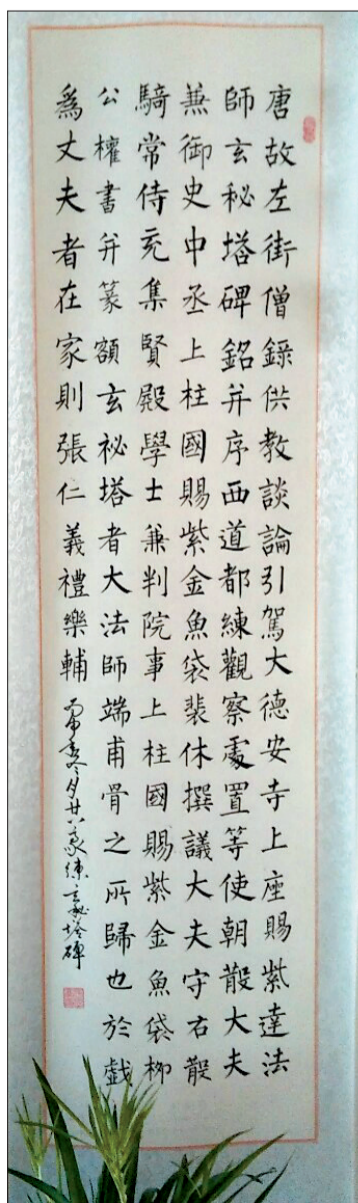 唐故左街僧錄供教談論引駕大德安寺上座賜紫達法
師玄秘塔碑銘并序西道都練觀察處置等使朝散大夫
兼御史中丞上柱國賜紫金魚袋裴休撰議大夫守右散
騎常侍充集賢殿學士兼判院事上柱國賜紫金魚袋柳
公權書并篆額玄祕塔者大法師端甫骨之所歸也於戲
為丈夫者在家則張仁義禮樂輔
丙申冬月廿八練玄秘塔碑